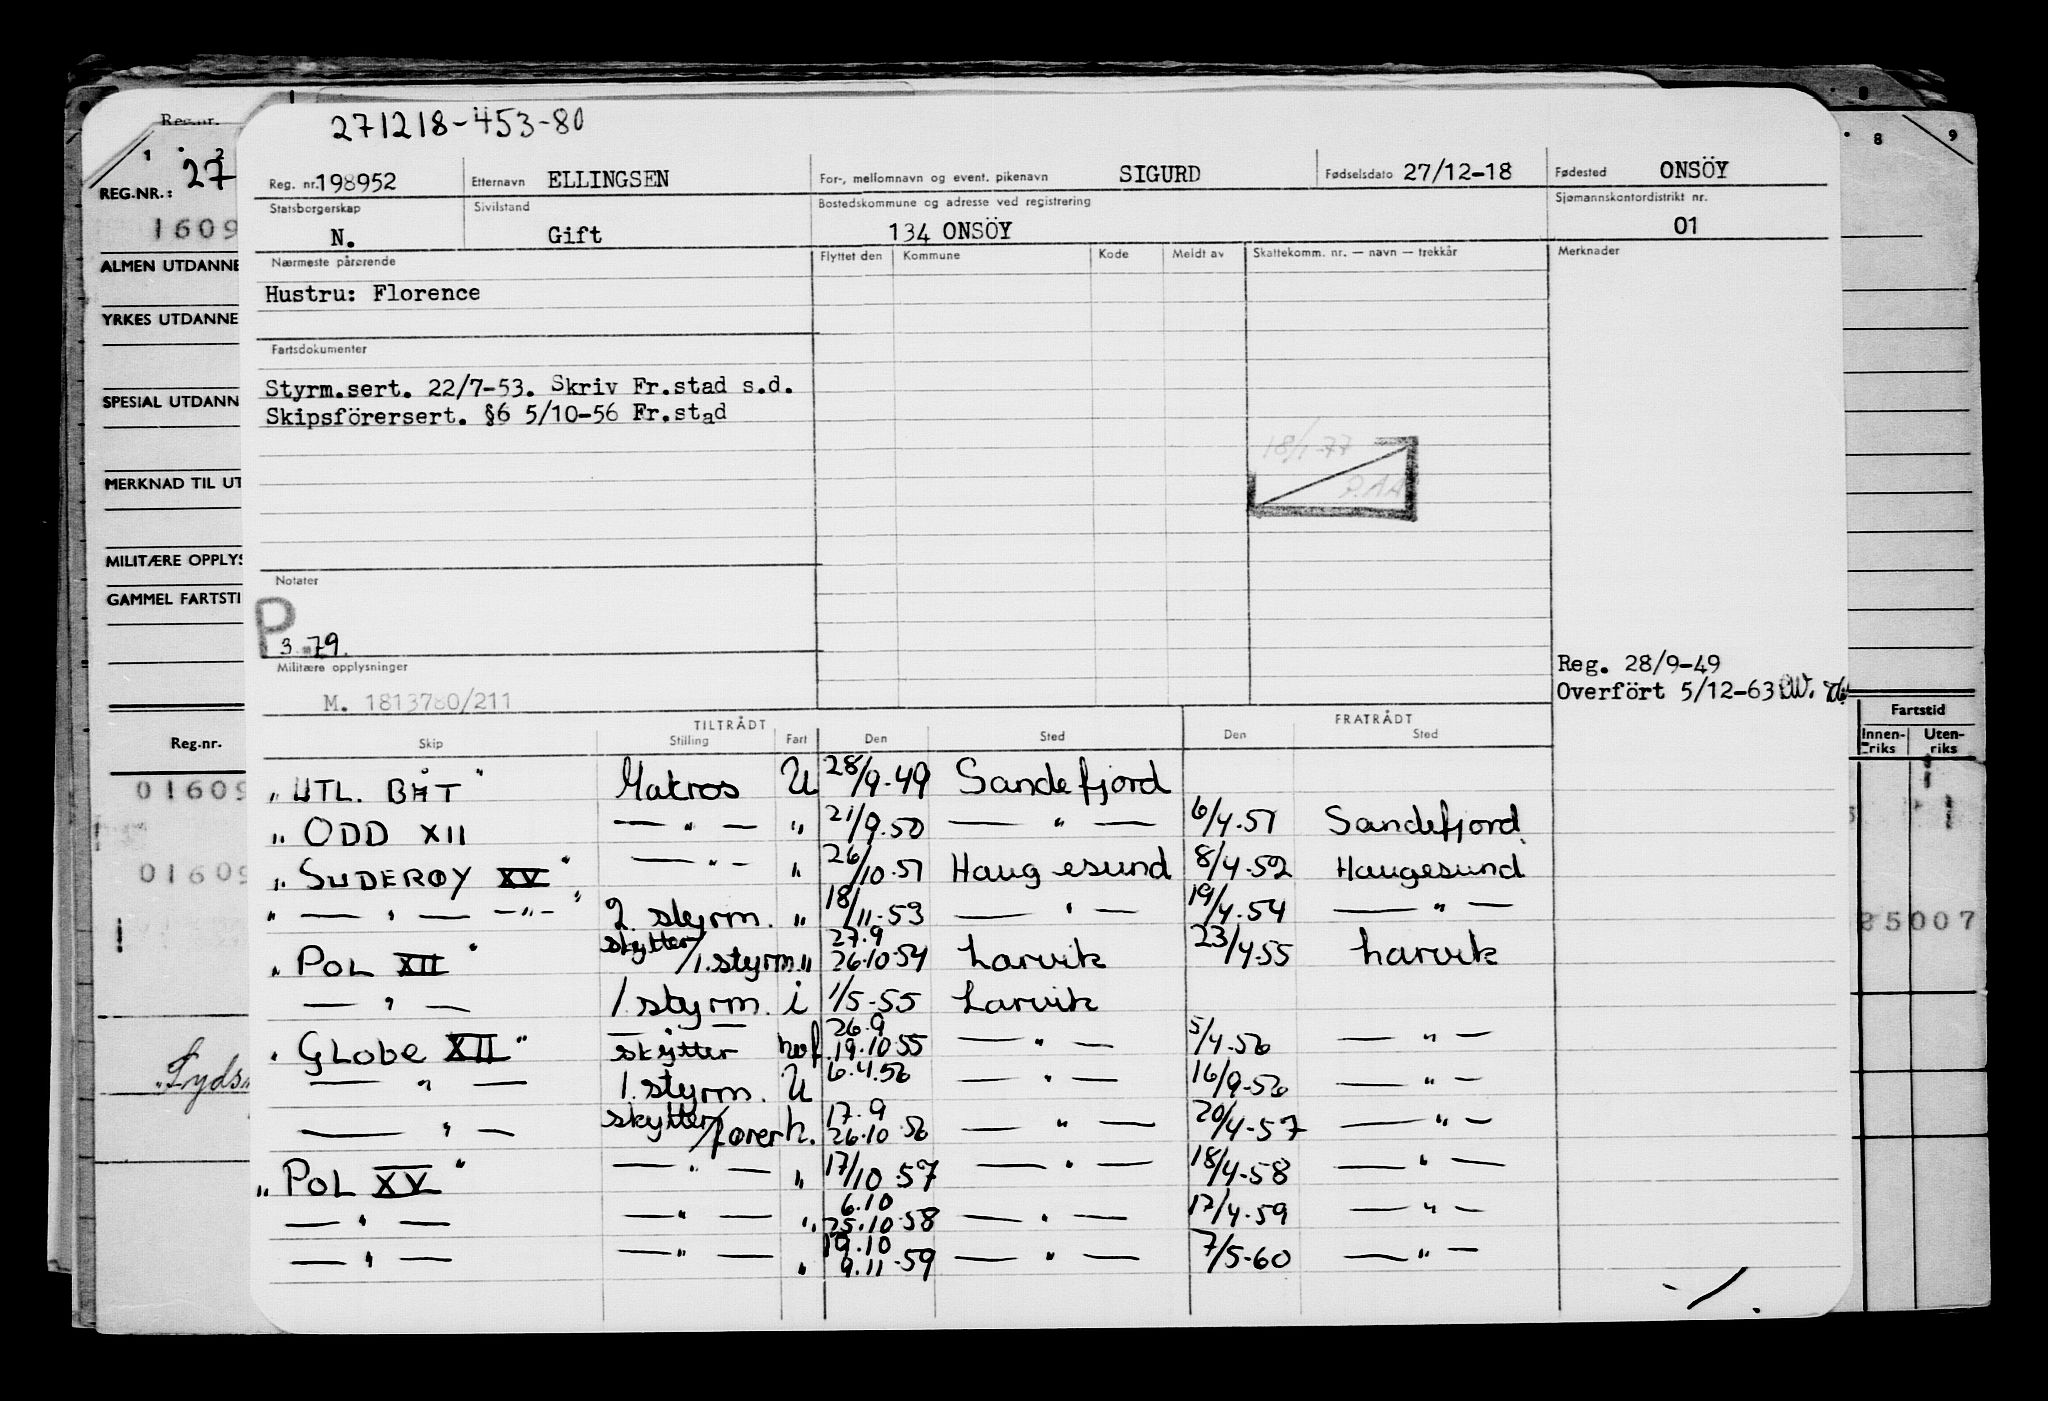 271218-453-80
Reg. nr. 198952 Etternavn ELLINGSEN For-, mellomnavn og event. pikenavn SIGURD Fødselsdato 27/12-18 Fødested ONSÖY
Statsborgerskap N. Sivilstand Gift Bostedskommune og adresse ved registrering 134 ONSÖY Sjømannskontordistrikt nr. 01
Nærmeste pårørende Flyttet den Kommune Kode Meldt av Skattekomm. nr. — navn — trekkår Merknader
Hustru: Florence
Fartsdokumenter
Styrm.sert. 22/7-53. Skriv Fr.stad s.d.
Skipsförersert. §6 5/10-56 Fr.stad
18/1-77
P.AA
Notater
P
3.79.
Militære opplysninger
M. 1813780/211
Reg. 28/9-49
Overfört 5/12-63
TILTRÅDT FRATRÅDT
Skip Stilling Fart Den Sted Den Sted
"UTL. BÅT" Matros U 28/9-49 Sandefjord
"ODD XII — " — " 21/9.50 — " — 6/4.51 Sandefjord
"SUDERØY XV" — " — " 26/10.51 Haugesund 8/4.52 Haugesund
" — " — " — " 2. styrm. " 18/11-53 — " — 19/4.54 — " —
"POL XII" skytter/1.styrm. " 27.9 26.10.54 Larvik 23/4.55 Larvik
— " — 1 styrm. i 1/5-55 Larvik
"GLOBE XII" — " — skytter hvf. 26.9 19.10.55 — " — 5/4.56 — " —
— " — 1. styrm. U 6.4.56 — " — 16/9-56 — " —
— " — skytter/fører h. 17.9 26.10.56 — " — 20/4-57 — " —
"POL XV" — " — " 17/10.57 — " — 18/4-58 — " —
— " — — " — " 6.10 25.10.58 — " — 17/4.59 — " —
— " — — " — " 19.10 9.11.59 — " — 7/5-60 — " —
Reg.nr.
1 2
REG.NR.: 27
1609
ALMEN UTDANNE
YRKES UTDANNE
SPESIAL UTDANN
MERKNAD TIL UT
MILITÆRE OPPLYS
GAMMEL FARTSTI
Reg.nr.
01609
01609
"Lyds
8 9
Fartstid
Innen-riks Uten-riks
25007